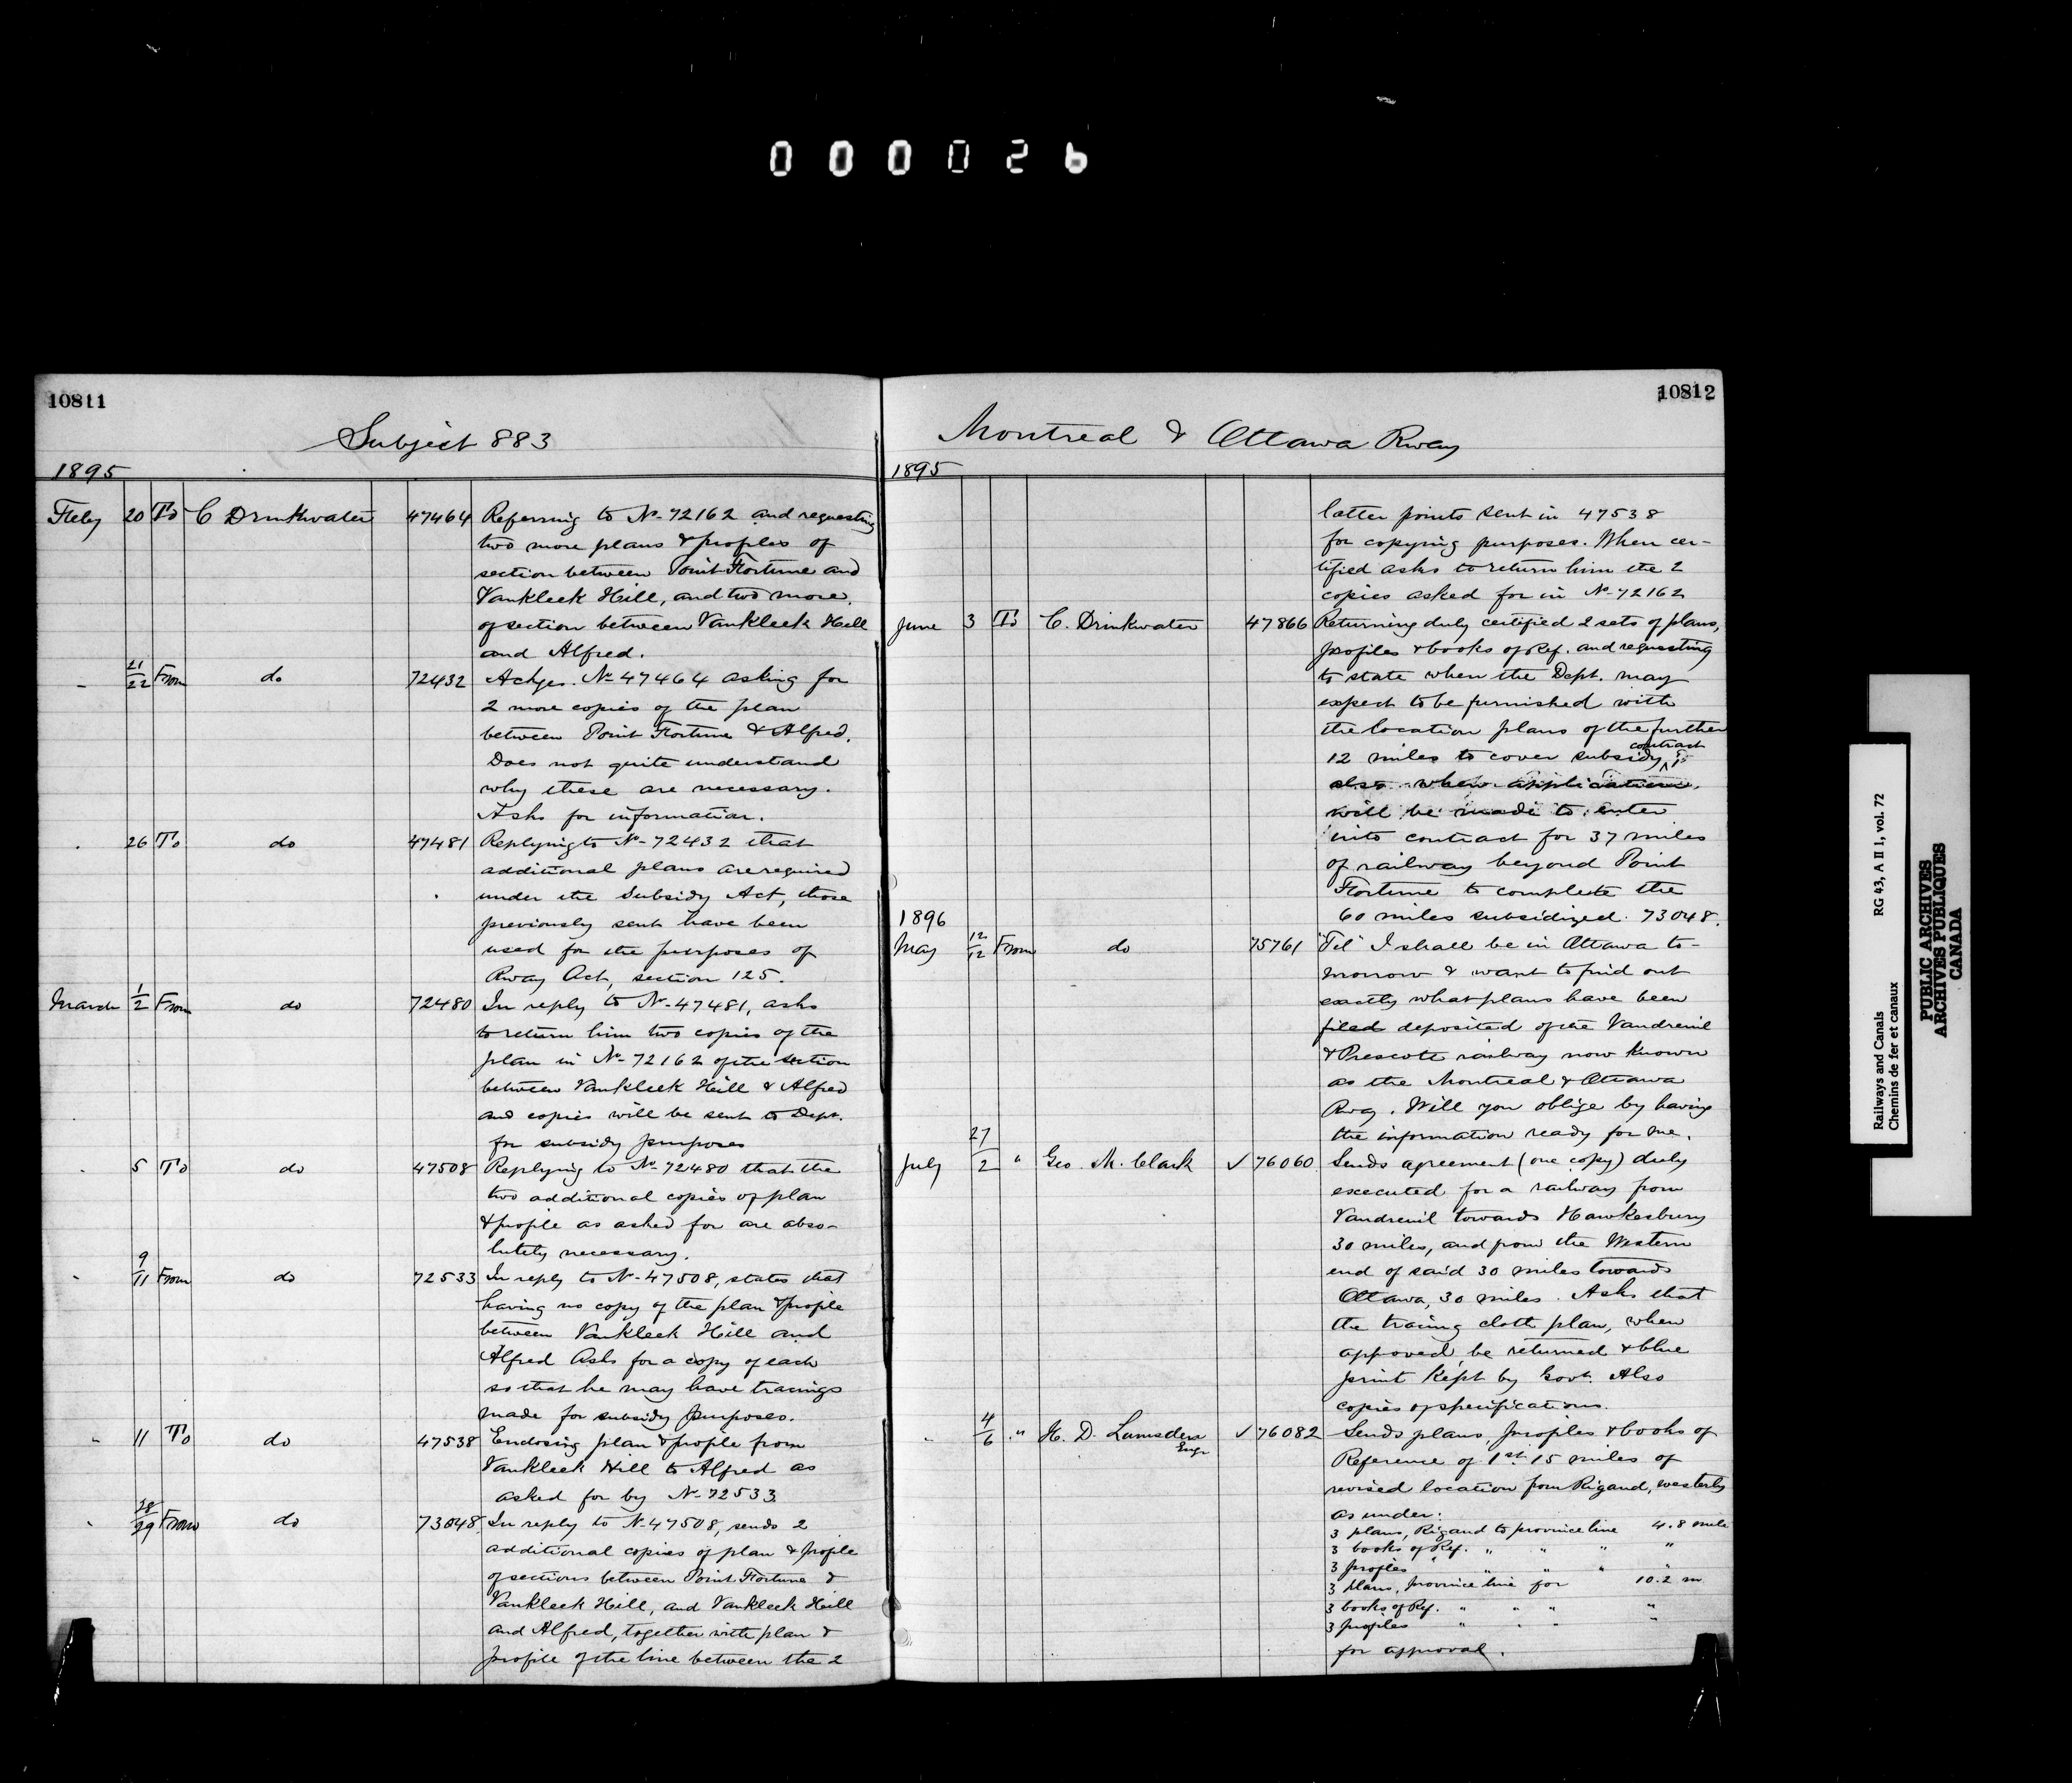 000026
10811
Subject 883
1895
Feby 20 To C Drinkwater 47464 Referring to No 72162 and requesting
two more plans & profiles of
section between Point Fortune and
Vankleek Hill, and two more
of section between Vankleek Hill
and Alfred.
" 21/22 From do 72432 Ackges. No 47464 asking for
2 more copies of the plan
between Point Fortune & Alfred.
Does not quite understand
why these are necessary.
Asks for information.
" 26 To do 47481 Replying to No 72432 that
additional plans are required
under the Subsidy Act, those
previously sent have been
used for the purposes of
Rway Act, section 125.
March 1/2 From do 72480 In reply to No 47481, asks
to return him two copies of the
plan in No 72162 of the section
between Vankleek Hill & Alfred
and copies will be sent to Dept.
for subsidy purposes
" 5 To do 47508 Replying to No 72480 that the
two additional copies of plan
& profile as asked for are abso-
lutely necessary.
" 9/11 From do 72533 In reply to No 47508, states that
having no copy of the plan & profile
between Vankleek Hill and
Alfred Asks for a copy of each
so that he may have tracings
made for subsidy purposes.
" 11 To do 47538 Enclosing plan & profile from
Vankleek Hill to Alfred as
asked for by No 72533
" 28/29 From do 73048 In reply to No 47508, sends 2
additional copies of plan & profile
of sections between Point Fortune &
Vankleek Hill, and Vankleek Hill
and Alfred, together with plan &
profile of the line between the 2
10812
Montreal & Ottawa Rway
1895
latter points sent in 47538
for copying purposes. When cer-
tified asks to return him the 2
copies asked for in No 72162
June 3 To C. Drinkwater 47866 Returning duly certified 2 sets of plans,
profiles & books of Ref. and requesting
to state when the Dept. may
expect to be furnished with
the location plans of the further
12 miles to cover subsidy contract
also when application
will be made to enter
into contract for 37 miles
of railway beyond Point
Fortune to complete the
60 miles subsidized. 73048.
1896
May 12/12 From do 75761 "Tel" I shall be in Ottawa to-
morrow & want to find out
exactly what plans have been
filed deposited of the Vaudreuil
& Prescott railway now known
as the Montreal & Ottawa
Rwy. Will you oblige by having
the information ready for me.
July 27/2 " Geo. M. Clark ✓ 76060 Sends agreement (one copy) duly
executed for a railway from
Vaudreuil towards Hawkesbury
30 miles, and from the Western
end of said 30 miles towards
Ottawa, 30 miles. Asks that
the tracing cloth plan, when
approved, be returned & blue
print kept by Govt. Also
copies of specifications.
" 4/6 " H. D. Lumsden Engr ✓ 76082 Sends plans, profiles & books of
Reference of 1st 15 miles of
revised location from Rigaud, westerly
as under:
3 plans, Rigaud to province line 4.8 mile
3 books of Ref. " " " "
3 profiles " " " "
3 plans, province line for 10.2 m
3 books of Ref. " " " "
3 profiles " " " "
for approval.
Railways and Canals RG 43, A II 1, vol. 72
Chemins de fer et canaux
PUBLIC ARCHIVES
ARCHIVES PUBLIQUES
CANADA